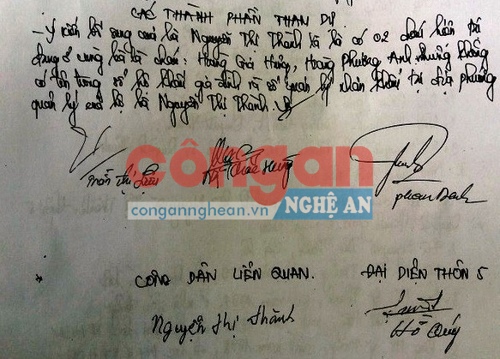 CÁC THÀNH PHẦN THAM DỰ
- Ý kiến bổ sung của bà Nguyễn Thị Thành là bà có 02 cháu hiện
dung ở cùng bà là cháu: Hoàng Gia Hưng, Hoàng Phương Anh nhưng không
có tên trong sổ hộ khẩu gia đình và sổ quản lý nhân khẩu tại địa phương
quản lý của bà Nguyễn Thị Thành
Trần Thị
Khắc Hùng
phan
côngan
congannghean.vn
NGHỆ AN
CÔNG DÂN LIÊN QUAN. ĐẠI DIỆN THÔN 5
Nguyễn Thị Thành
Hồ Quý